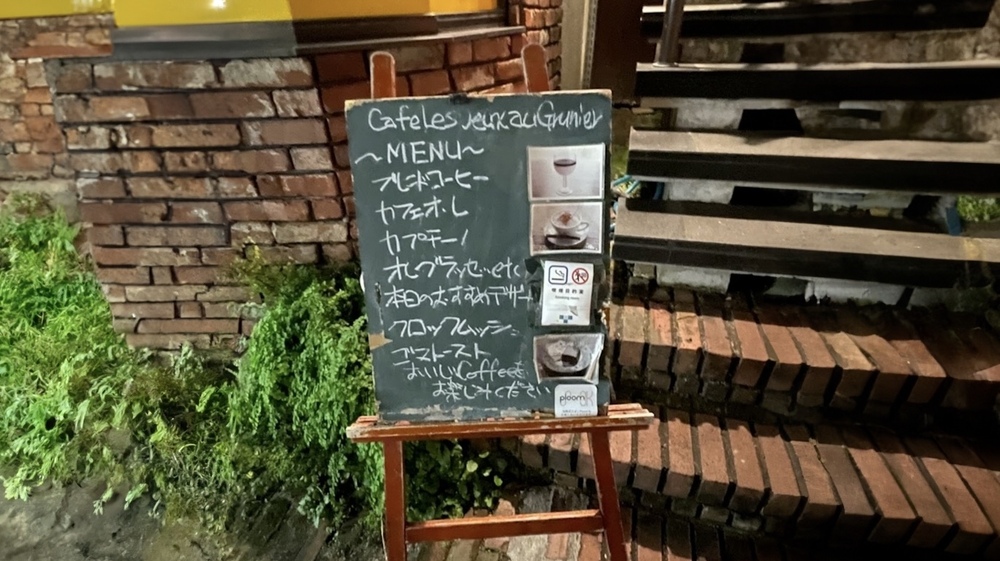 Cafe Les Jeux au Grenier
～MENU～
ブレンドコーヒー
カフェオ・レ
カプチーノ
オ・グラッセ etc
本日のおすすめデザート
クロックムッシュ
ゴマトースト
おいしいCoffeeを
お楽しみください
喫煙目的室
Smoking Room
ploom